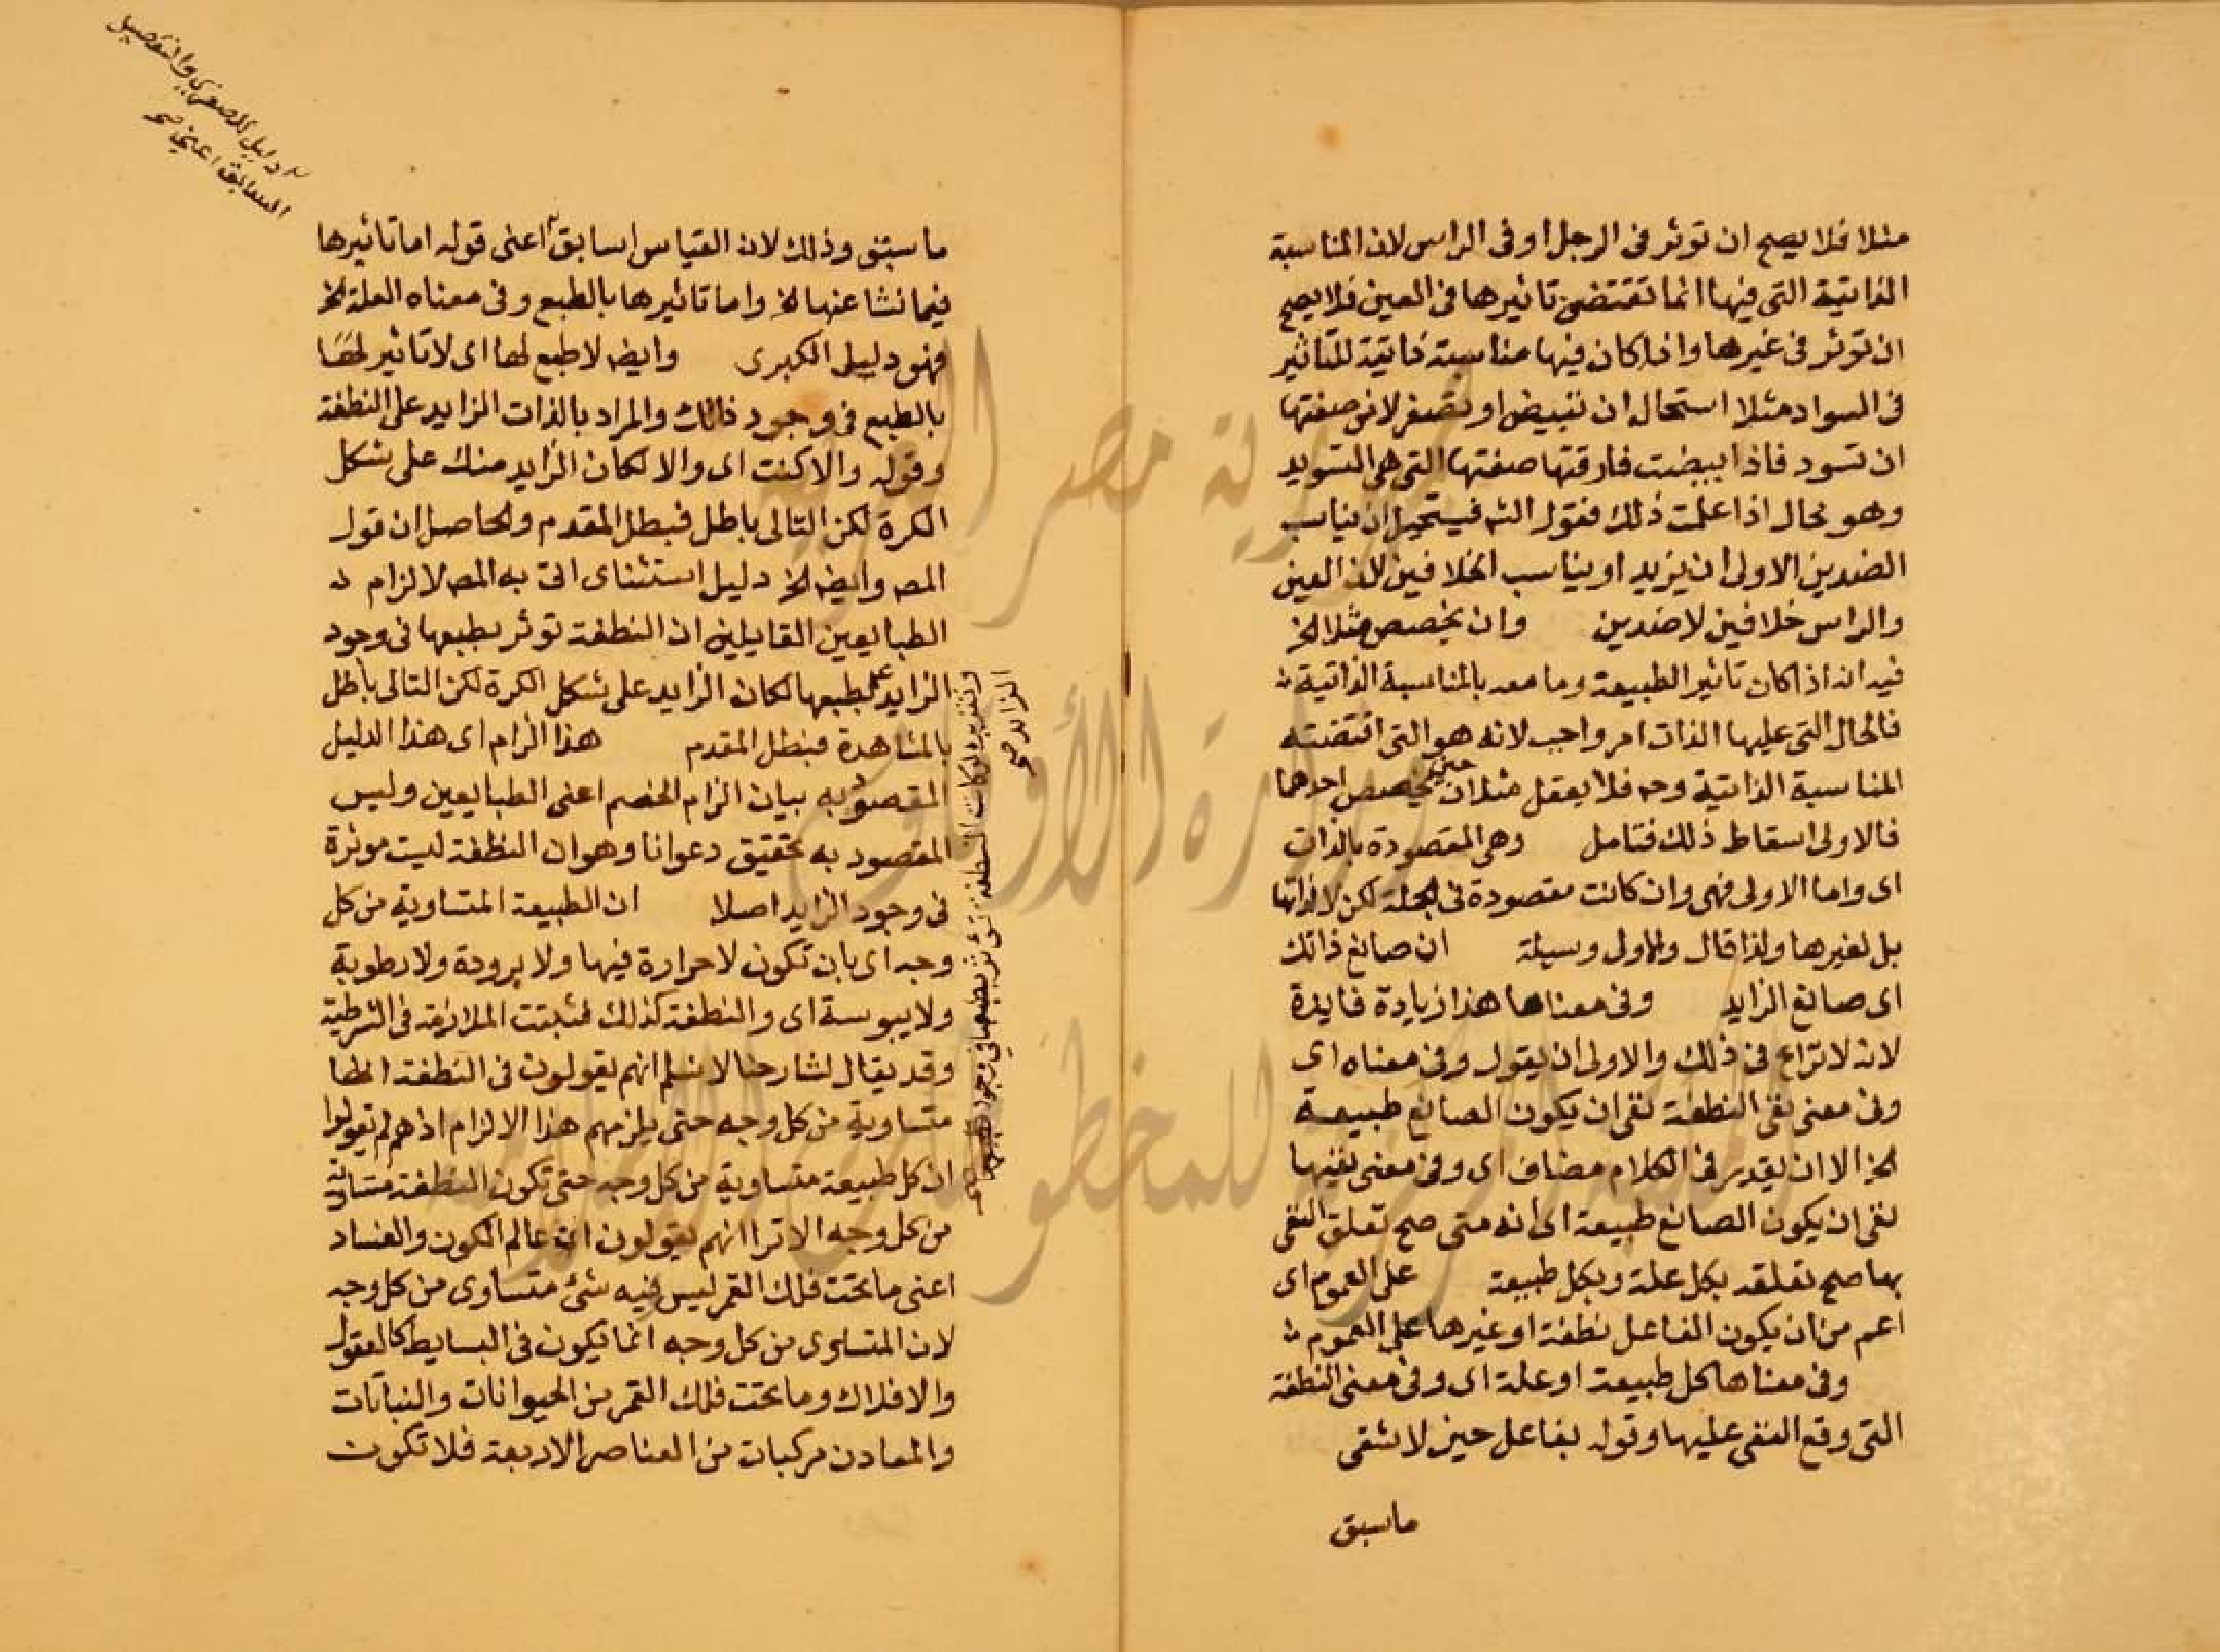 مثلا فلا يصح ان توثر فى الرجل او فى الراس لان المناسبة
الذاتية التى فيها انما تقتضى تاثيرها فى العين فلا يصح
ان توثر فى غيرها واذا كان فيها مناسبة ذاتية للتاثير
فى السواد مثلا استحال ان تبيض او تصفر لان صفتها
ان تسود فاذا بيضت فارقتها صفتها التى هى التسويد
وهو محال اذا علمت ذلك فقول الشه فيستحيل ان يناسب
الضدين الاولى ان يزيد او يناسب الخلافين لان العين
والراس خلافين لا ضدين وان يخصص مثلا الخ
فيه انه اذا كان تاثير الطبيعة وما معه بالمناسبة الذاتية
فالحال التى عليها الذات امر واجب لانه هو التى اقتضته
المناسبة الذاتية وحه فلا يعقل مثلان حتى يخصص احدهما
فالاولى اسقاط ذلك فتامل وهى المقصودة بالذات
اى واما الاولى فهى وان كانت مقصودة فى الجملة لكن لا لذاتها
بل لغيرها ولذا قال والاولى وسيلة ان صانع ذاتك
اى صانع الزايد وفى معناها هذا زيادة فايدة
لانه لا نزاع فى ذلك والاولى ان يقول وفى معناه اى
وفى معنى نفى النطفة نفى ان يكون الصانع طبيعة
الخ الا ان يقدر فى الكلام مضاف اى وفى معنى نفيها
نفى ان يكون الصانع طبيعة اى انه متى صح تعلق النفى
بها صح تعلقه بكل علة وبكل طبيعة على العموم اى
اعم من ان يكون الفاعل نطفة او غيرها على العموم
وفى معناها كل طبيعة او علة اى وفى معنى النطفة
التى وقع النفى عليها وقوله بفاعل حيز لا شفى
ما سبق
دليل للصغرى والتفصيل
السابق اعنى صح
ما سبق وذلك لان القياس السابق اعنى قوله اما تاثيرها
فيما نشا عنها الخ واما تاثيرها بالطبع وفى معناه العلة الخ
فهو دليل الكبرى وايضه لا طبع لها اى لا تاثير لها
بالطبع فى وجود ذاتك والمراد بالذات الزايد على النطفة
وقوله والا كنت اى والا لكان الزايد منك على شكل
الكرة لكن التالى باطل فبطل المقدم والحاصل ان قول
المصه وايضه الخ دليل استثناى اتى به المصه لالزام
الطبايعين القايلين ان النطفة توثر بطبعها فى وجود
الزايد على بطبعها لكان الزايد على شكل الكرة لكن التالى باطل
بالمشاهدة فبطل المقدم هذا الزام اى هذا الدليل
المقصود به بيان الزام الخصم اعنى الطبايعين وليس
المقصود به تحقيق دعوانا وهو ان النطفة ليست موثرة
فى وجود الزايد اصلا ان الطبيعة المتساوية من كل
وجه اى بان تكون لا حرارة فيها ولا برودة ولا رطوبة
ولا يبوسة اى والنطفة كذلك فثبتت الملازمة فى الشرطية
وقد يقال لشارحنا لا نسلم انهم يقولون فى النطفة انها
متساوية من كل وجه حتى يلزمهم هذا الالزام اذ هم لم يقولوا
ان كل طبيعة متساوية من كل وجه حتى تكون النطفة متساوية
من كل وجه الا ترا انهم يقولون ان عالم الكون والفساد
اعنى ما تحت فلك القمر ليس فيه شئ متساوى من كل وجه
لان المتساوى من كل وجه انما يكون فى البسايط كالعقول
والافلاك وما تحت فلك القمر من الحيوانات والنباتات
والمعادن مركبات من العناصر الاربعة فلا تكون
وتقريره لو كانت النطفة توثر بطبعها فى وجود
الزايد صح
جمهورية مصر العربية
وزارة الأوقاف
المكتبة المركزية للمخطوطات الإسلامية